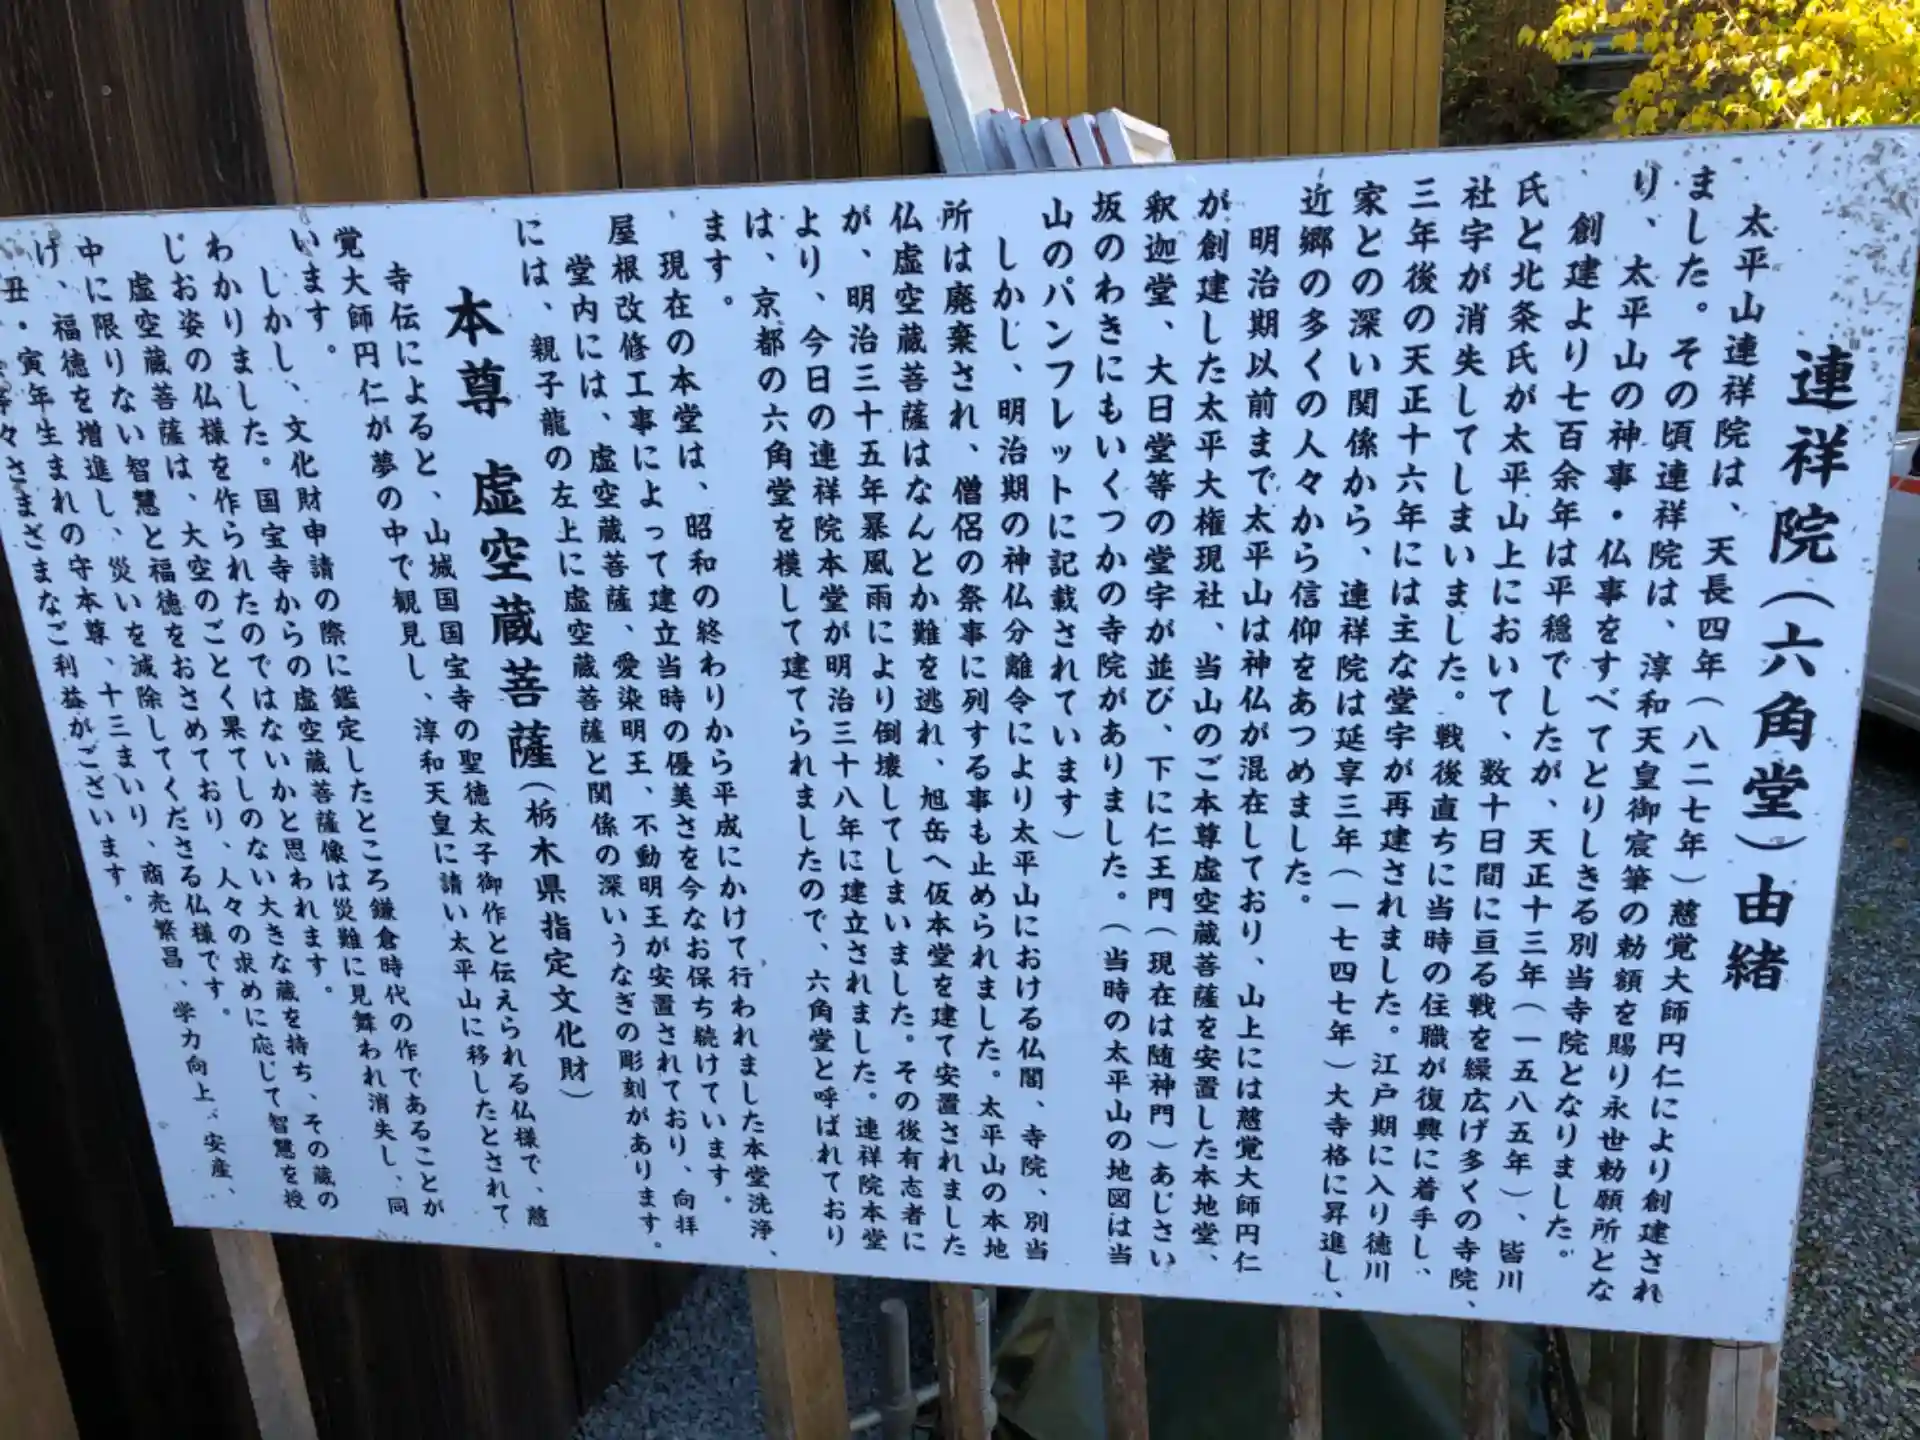 連祥院(六角堂)由緒
太平山連祥院は、天長四年(八二七年)慈覚大師円仁により創建され
ました。その頃連祥院は、淳和天皇御宸筆の勅額を賜り永世勅願所とな
り、太平山の神事・仏事をすべてとりしきる別当寺院となりました。
創建より七百余年は平穏でしたが、天正十三年(一五八五年)、皆川
氏と北条氏が太平山上において、数十日間に亘る戦を繰広げ多くの寺院、
社宇が消失してしまいました。戦後直ちに当時の住職が復興に着手し、
三年後の天正十六年には主な堂宇が再建されました。江戸期に入り徳川
家との深い関係から、連祥院は延享三年(一七四七年)大寺格に昇進し、
近郷の多くの人々から信仰をあつめました。
明治期以前まで太平山は神仏が混在しており、山上には慈覚大師円仁
が創建した太平大権現社、当山のご本尊虚空蔵菩薩を安置した本地堂、
釈迦堂、大日堂等の堂宇が並び、下に仁王門(現在は随神門)あじさい
坂のわきにもいくつかの寺院がありました。(当時の太平山の地図は当
山のパンフレットに記載されています)
しかし、明治期の神仏分離令により太平山における仏閣、寺院、別当
所は廃棄され、僧侶の祭事に列する事も止められました。太平山の本地
仏虚空蔵菩薩はなんとか難を逃れ、旭岳へ仮本堂を建て安置されました
が、明治三十五年暴風雨により倒壊してしまいました。その後有志者に
より、今日の連祥院本堂が明治三十八年に建立されました。連祥院本堂
は、京都の六角堂を模して建てられましたので、六角堂と呼ばれており
ます。
現在の本堂は、昭和の終わりから平成にかけて行われました本堂洗浄、
屋根改修工事によって建立当時の優美さを今なお保ち続けています。
堂内には、虚空蔵菩薩、愛染明王、不動明王が安置されており、向拝
には、親子龍の左上に虚空蔵菩薩と関係の深いうなぎの彫刻があります。
本尊 虚空蔵菩薩(栃木県指定文化財)
寺伝によると、山城国国宝寺の聖徳太子御作と伝えられる仏様で、慈
覚大師円仁が夢の中で観見し、淳和天皇に請い太平山に移したとされて
います。
しかし、文化財申請の際に鑑定したところ鎌倉時代の作であることが
わかりました。国宝寺からの虚空蔵菩薩像は災難に見舞われ消失し、同
じお姿の仏様を作られたのではないかと思われます。
虚空蔵菩薩は、大空のごとく果てしのない大きな蔵を持ち、その蔵の
中に限りない智慧と福徳をおさめており、人々の求めに応じて智慧を授
げ、福徳を増進し、災いを減除してくださる仏様です。
丑・寅年生まれの守本尊、十三まいり、商売繁昌、学力向上、安産、
等々さまざまなご利益がございます。